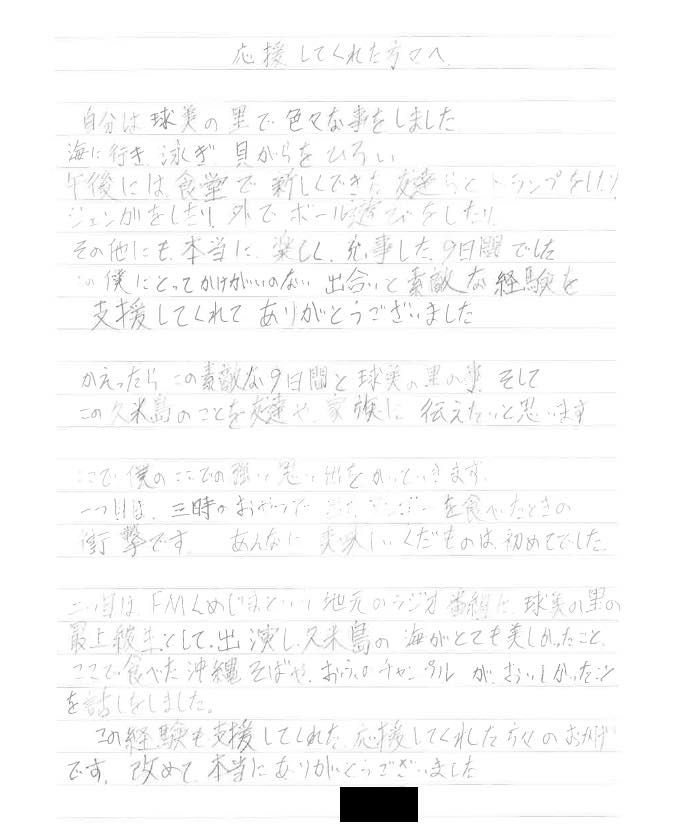 応援してくれた方々へ
自分は球美の里で色々な事をしました
海に行き、泳ぎ、貝がらをひろい
午後には食堂で新しくできた友達らとトランプをしたり
ジェンガをしたり、外でボール遊びをしたり
その他にも本当に楽しく充実した9日間でした
この僕にとってかけがいのない出合いと素敵な経験を
支援してくれてありがとうございました
かえったらこの素敵な9日間と球美の里の事、そして
この久米島のことを友達や、家族に伝えたいと思います
ここで僕のここでの強い思い出をかいていきます。
一つ目は、三時のおやつで マンゴーを食べたときの
衝撃です。あんなに美味しいくだものは初めてでした。
二つ目は、FMくめじまという地元のラジオ番組に、球美の里の
最上級生として、出演し、久米島の海がとても美しかったこと、
ここで食べた沖縄そばや、チャンプルがおいしかったこと
を話しをしました。
この経験も支援してくれた、応援してくれた方々のおかげ
です。改めて、本当にありがとうございました